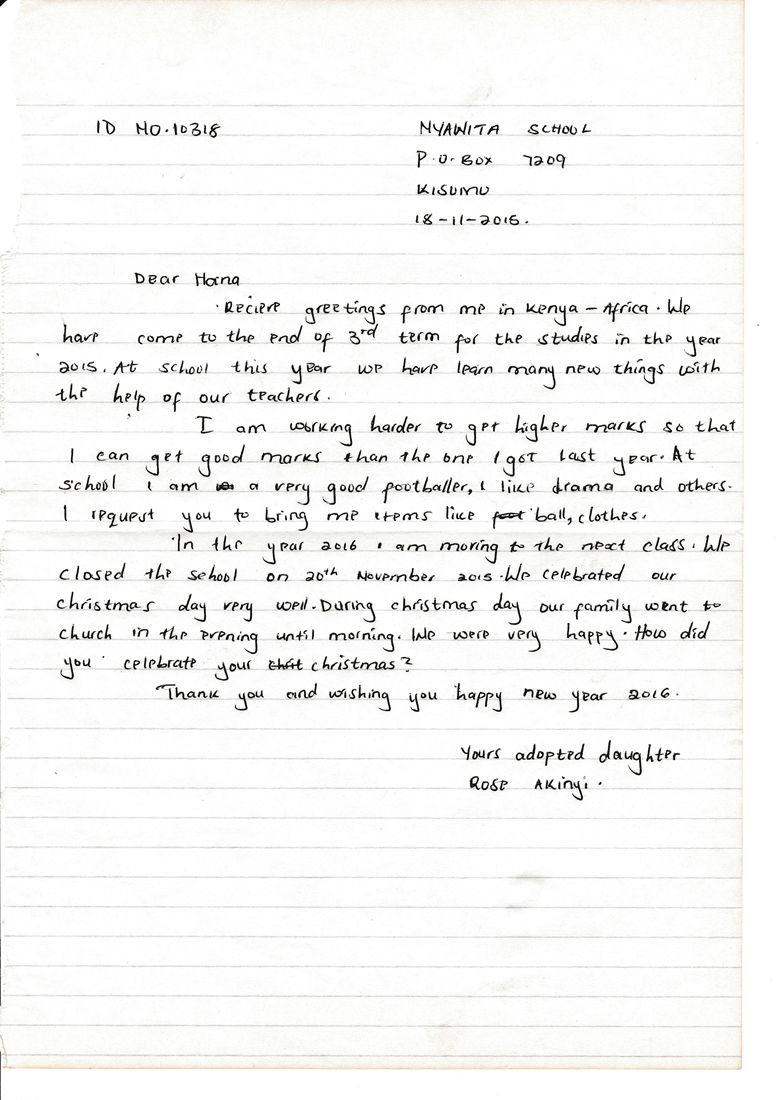 ID NO. 10318
NYAWITA SCHOOL
P.O. BOX 7209
KISUMU
18-11-2015.
Dear Hana
Recieve greetings from me in Kenya - Africa. We
have come to the end of 3rd term for the studies in the year
2015. At school this year we have learn many new things with
the help of our teachers.
I am working harder to get higher marks so that
I can get good marks than the one I got last year. At
school i am a very good footballer, i like drama and others.
I request you to bring me items like ball, clothes.
In the year 2016 i am moving to the next class. We
closed the school on 20th November 2015. We celebrated our
christmas day very well. During christmas day our family went to
church in the evening until morning. We were very happy. How did
you celebrate your christmas?
Thank you and wishing you happy new year 2016.
Yours adopted daughter
ROSE AKinyi.